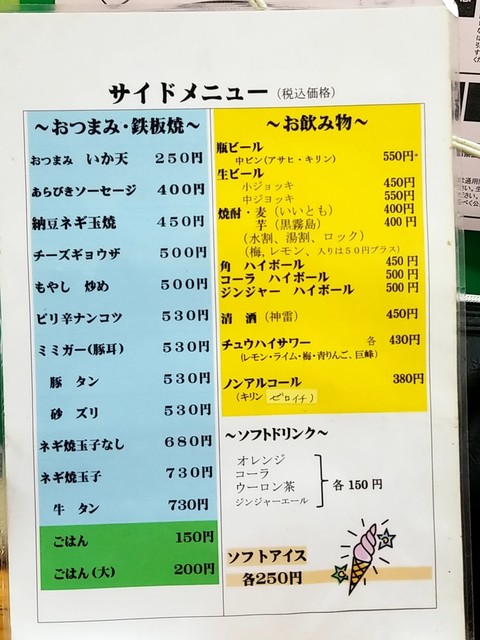 サイドメニュー（税込価格）
～おつまみ・鉄板焼～
おつまみ いか天 250円
あらびきソーセージ 400円
納豆ネギ玉焼 450円
チーズギョウザ 500円
もやし 炒め 500円
ピリ辛ナンコツ 530円
ミミガー(豚耳) 530円
豚 タン 530円
砂 ズリ 530円
ネギ焼玉子なし 680円
ネギ焼玉子 730円
牛 タン 730円
ごはん 150円
ごはん(大) 200円
～お飲み物～
瓶ビール
中ビン(アサヒ・キリン) 550円
生ビール
小ジョッキ 450円
中ジョッキ 550円
焼酎・麦（いいとも） 400円
芋（黒霧島） 400円
（水割、湯割、ロック）
（梅,レモン、入りは５０円プラス）
角 ハイボール 450円
コーラ ハイボール 500円
ジンジャー ハイボール 500円
清 酒（神雷） 450円
チュウハイサワー 各 430円
（レモン・ライム・梅・青りんご、巨峰）
ノンアルコール 380円
（キリン ゼロイチ）
～ソフトドリンク～
オレンジ
コーラ
ウーロン茶 各150円
ジンジャーエール
ソフトアイス
各250円